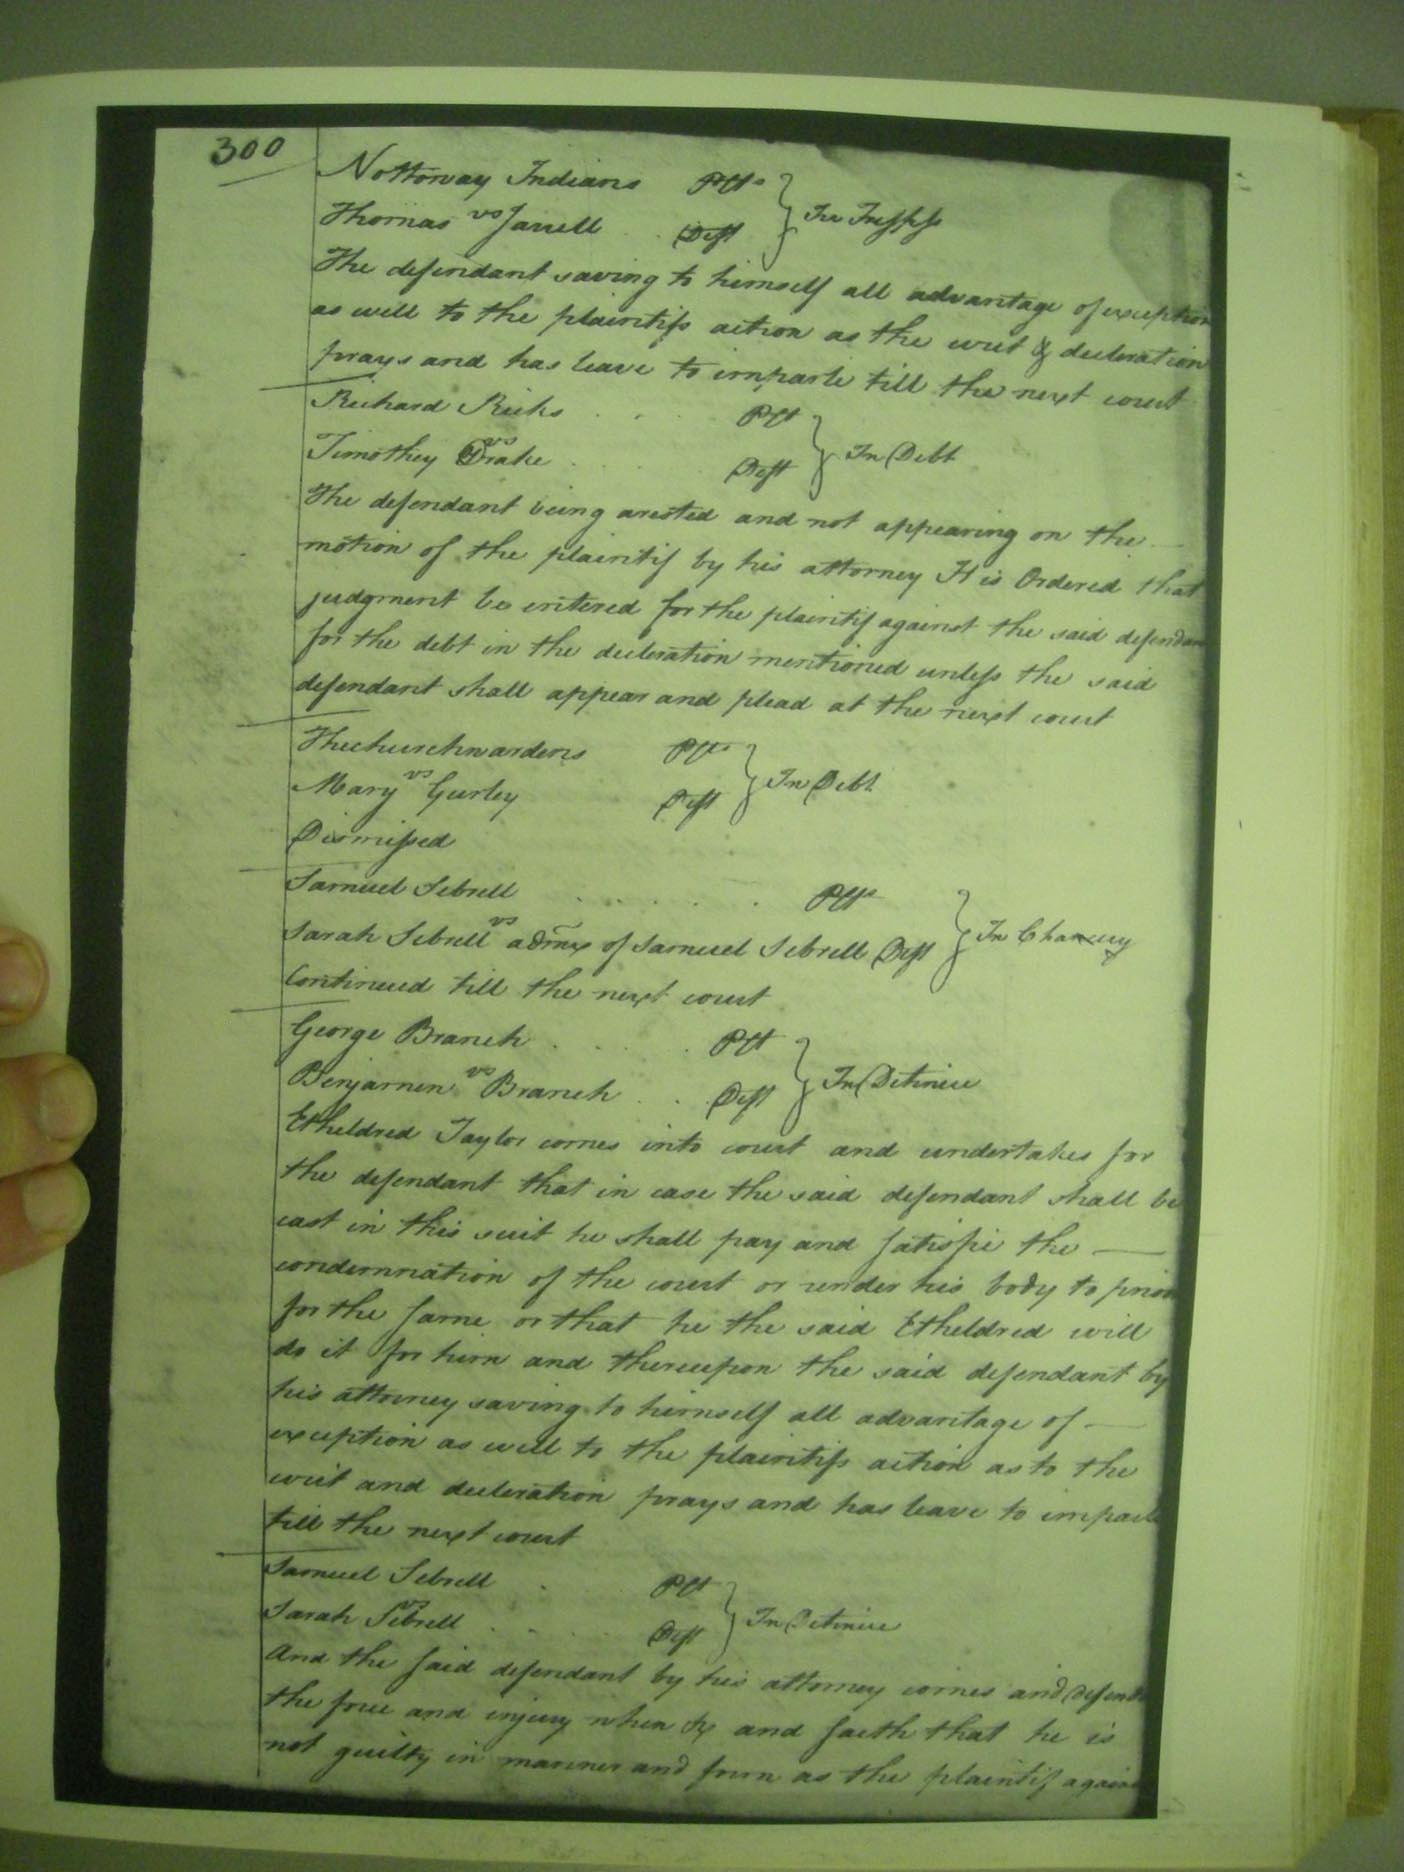 300
Nottoway Indians Plts
vs
Thomas Jarrell Deft } In Tresspss
The defendant saving to himself all advantage of exception
as well to the plaintifs action as the writ & decleration
prays and has leave to imparle till the next court
Richard Ricks Plt
vs
Timothey Drake Deft } In Debt
The defendant being arested and not appearing on the
motion of the plaintif by his attorney It is Ordered that
judgment be entered for the plaintif against the said defendan
for the debt in the decleration mentioned unless the said
defendant shall appear and plead at the next court
Thechurchwardens Plts
vs
Mary Gurley Deft } In Debt
Dismissed
Samuel Sebrell Plt
vs
Sarah Sebrell admx of Samuel Sebrell Deft } In Chancery
Continued till the next court
George Branch Plt
vs
Benjamen Branch Deft } In Detinue
Etheldred Taylor comes into court and undertakes for
the defendant that in case the said defendant shall be
cast in this suit he shall pay and satisfie the
condemnation of the court or render his body to prison
for the same or that he the said Etheldred will
do it for him and thereupon the said defendant by
his attorney saving to himself all advantage of
exception as well to the plaintifs action as to the
writ and decleration prays and has leave to imparle
till the next court
Samuel Sebrell Plt
vs
Sarah Sebrell Deft } In Detinue
And the said defendant by his attorney comes and defends
the force and injury when &c and saith that he is
not guilty in manner and form as the plaintif against